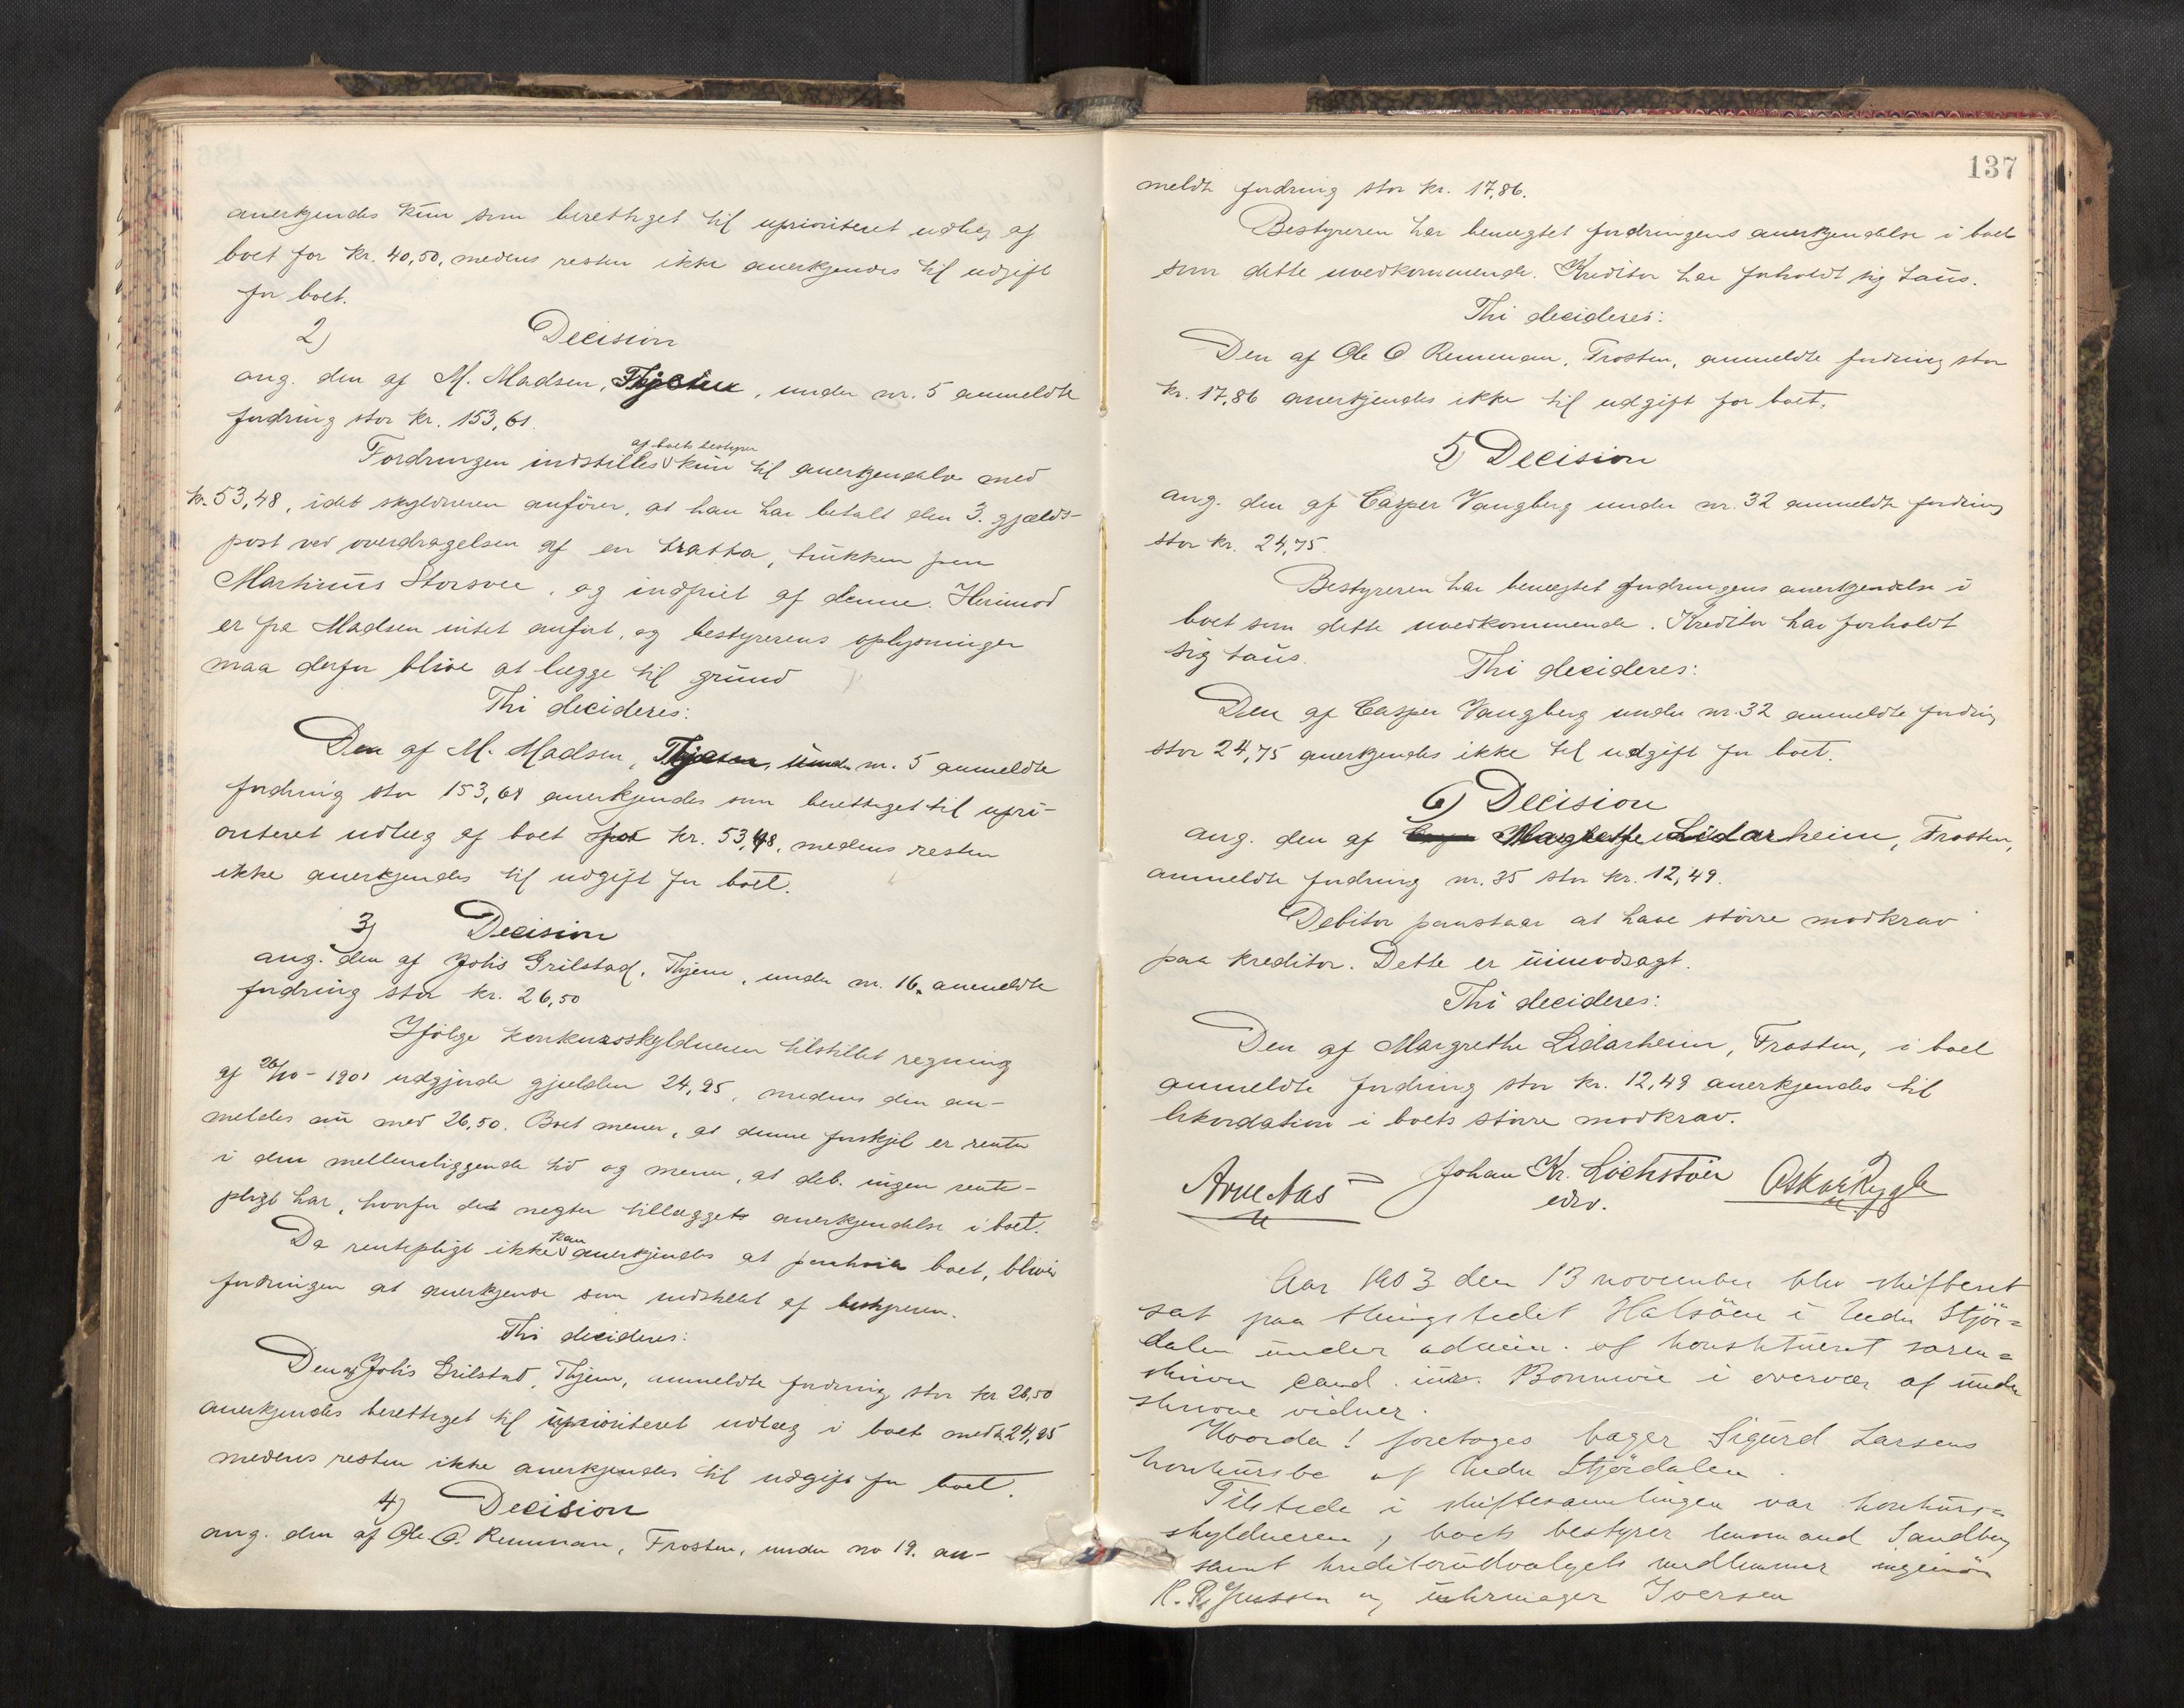 anerkjendes kun som berettiget til uprioriteret udlæg af
boet for kr. 40,50, medens resten ikke anerkjendes til udgift
for boet.
2) Decision
ang. den af M. Madsen, , under nr. 5 anmeldte
fordring stor kr. 153,61.
af boets bestyrer
Fordringen indstilles kun til anerkjendelse med
kr. 53,48, idet skyldneren anfører, at han har betalt den 3. gjælds-
post ved overdragelsen af en tratta, trukken paa
Martinus Storsvee, og indfriet af denne. Herimod
er fra Madsen intet anført, og bestyrerens oplysninger
maa derfor blive at lægge til grund
Thi decideres:
Den af M. Madsen, , under nr. 5 anmeldte
fordring stor 153,61 anerkjendes som berettiget til upri-
oriteret udlæg af boet for kr. 53,48, medens resten
ikke anerkjendes til udgift for boet.
3) Decision
ang. den af Johs Grilstad, Thjem, under nr. 16 anmeldte
fordring stor kr. 26,50
Ifølge konkursskyldneren tilstillet regning
af 26/10 - 1901 udgjorde gjælden 24,95, medens den an-
meldes nu med 26,50. Boet mener, at denne forskjel er renter
i den mellemliggende tid og mener, at deb. ingen rente-
pligt har, hvorfor det negter tillæggets anerkjendelse i boet.
Da rentepligt ikke kan anerkjendes at paahvile boet, bliver
fordringen at anerkjende som indstillet af bestyreren.
Thi decideres:
Den af Johs Grilstad, Thjem, anmeldte fordring stor kr 26,50
anerkjendes berettiget til uprioriteret udlæg i boet med kr. 24,95
medens resten ikke anerkjendes til udgift for boet.
4) Decision
ang. den af Ole O. Remman, Frosten, under no 19. an-
137
meldte fordring stor kr. 17,86.
Bestyreren har benegtet fordringens anerkjendelse i boet
som dette uvedkommende. Kreditor har forholdt sig taus.
Thi decideres:
Den af Ole O Remman, Frosten, anmeldte fordring stor
kr. 17,86 anerkjendes ikke til udgift for boet.
5) Decision
ang. den af Casper Vangberg under nr. 32 anmeldte fordring
stor kr. 24,75.
Bestyreren har benegtet fordringens anerkjendelse i
boet som dette uvedkommende. Kreditor har forholdt
sig taus.
Thi decideres:
Den af Casper Vangberg under nr. 32 anmeldte fordring
stor 24,75 anerkjendes ikke til udgift for boet.
6) Decision
ang. den af Margrethe Lidarheim, Frosten,
anmeldte fordring nr. 35 stor kr. 12,49.
Debitor paastaar at have større modkrav
paa kreditor. Dette er uimodsagt.
Thi decideres:
Den af Margrethe Lidarheim, Frosten, i boet
anmeldte fordring stor kr. 12,49 anerkjendes til
likvidation i boets større modkrav.
Arne Aas Johan Kr. Lochstøer Oskar Rygg
edsv.
Aar 1903 den 13 november blev skifteret
sat paa thingstedet Halsøen i Nedre Stjør=
dalen under admin. af konstitueret soren=
skriver cand. jur. Bonnevie i overvær af under
skrevne vidner.
Hvorda! foretoges bager Sigurd Larsens
konkursbo af Nedre Stjørdalen.
Tilstede i skiftesamlingen var konkurs=
skyldneren, boets bestyrer lensmand Sandberg
samt kreditorudvalgets medlemmer ingeniør
R. Jenssen og uhrmager Iversen